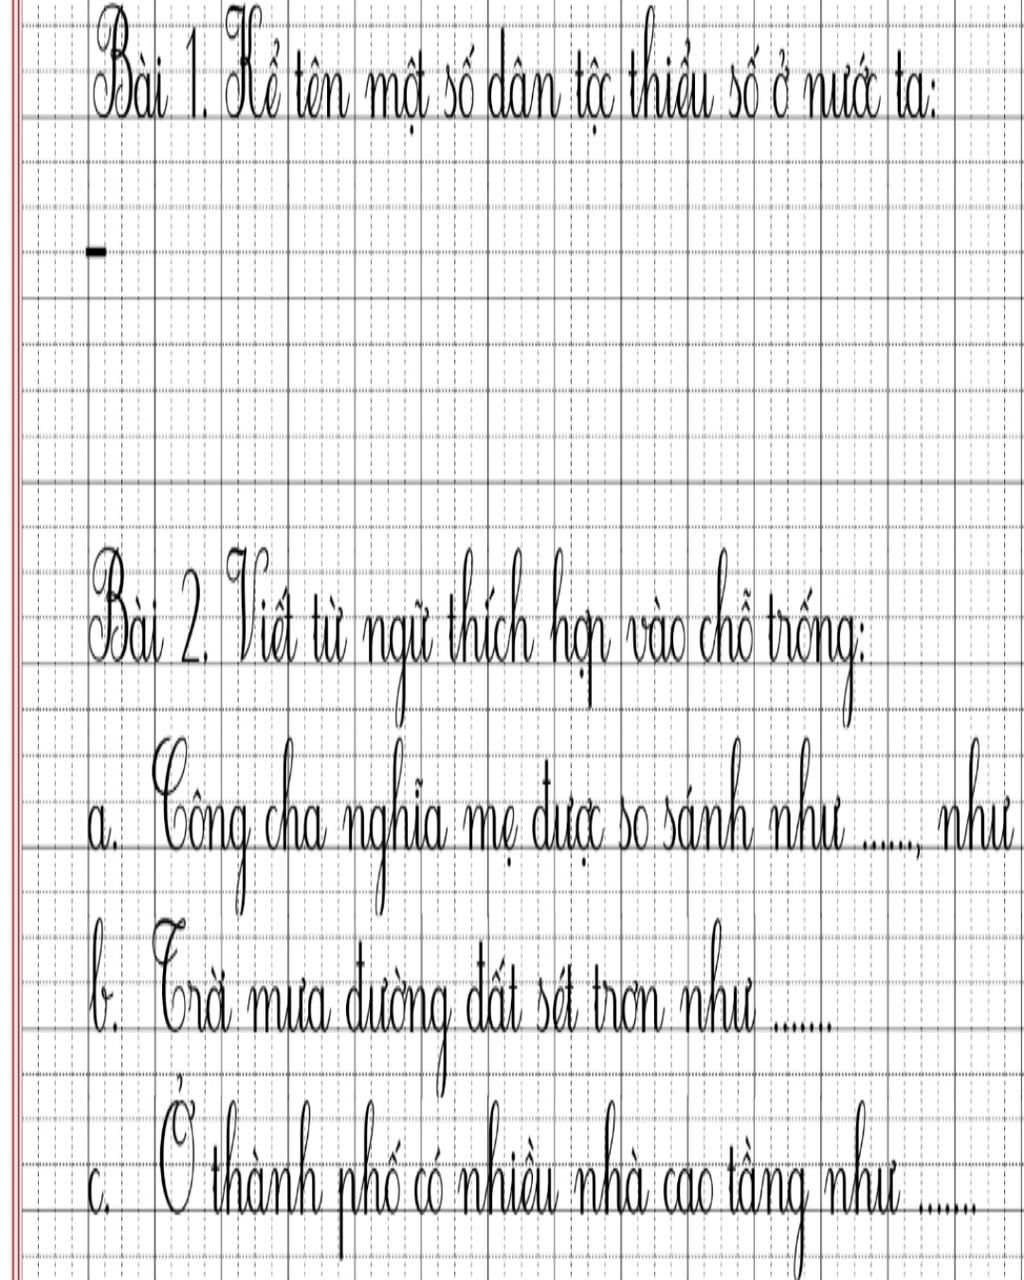 Bài 1. Kể tên một số dân tộc thiểu số ở nước ta:
-
Bài 2. Viết từ ngữ thích hợp vào chỗ trống:
a. Công cha nghĩa mẹ được so sánh như ......, như
b. Trời mưa đường đất sét trơn như .......
c. Ở thành phố có nhiều nhà cao tầng như .......